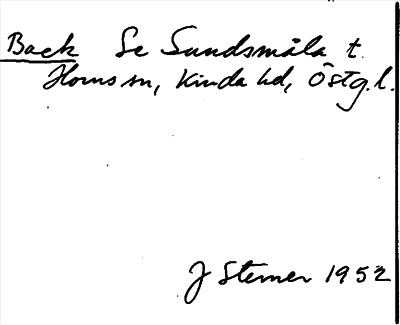 Back Se Sundsmåla t.
Horns sn, Kinda hd, Östg.l.
J Sterner 1952